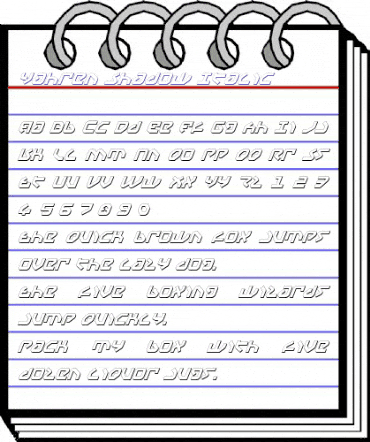 Yahren Shadow Italic
Aa Bb Cc Dd Ee Ff Gg Ah Ii Jj
Kk Ll Mm Nn Oo Pp Qq Rr Ss
Tt Uu Vv Ww Xx Yy Zz 1 2 3
4 5 6 7 8 9 0
the quick brown fox jumps
over the lazy dog.
the five boxing wizards
jump quickly.
Pack my box with five
dozen liquor jugs.